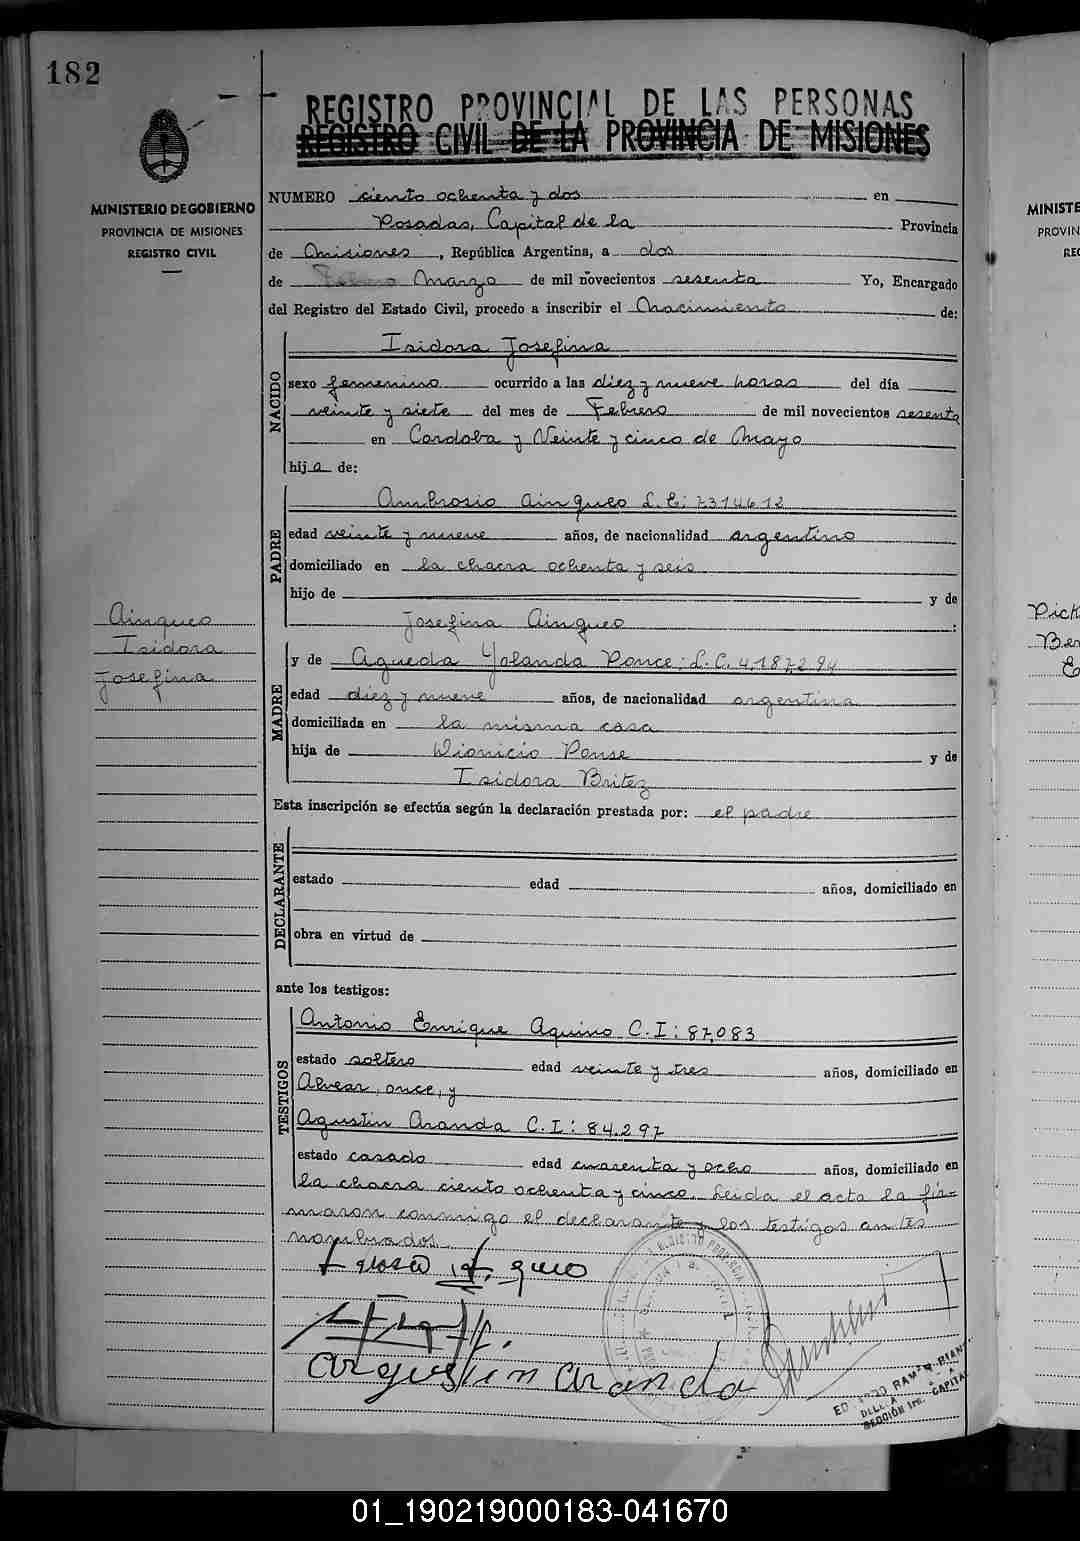 182
REGISTRO PROVINCIAL DE LAS PERSONAS
REGISTRO CIVIL DE LA PROVINCIA DE MISIONES
MINISTERIO DE GOBIERNO
PROVINCIA DE MISIONES
REGISTRO CIVIL
NUMERO ciento ochenta y dos en
Posadas, Capital de la Provincia
de Misiones, República Argentina, a dos
de Febrero Marzo de mil novecientos sesenta Yo, Encargado
del Registro del Estado Civil, procedo a inscribir el Nacimiento de:
NACIDO
Isidora Josefina
sexo femenino ocurrido a las diez y nueve horas del día
veinte y siete del mes de Febrero de mil novecientos sesenta
en Cordoba y Veinte y cinco de Mayo
hija de:
PADRE
Ambrosio Ainqueo L.E: 7314612
edad veinte y nueve años, de nacionalidad argentino
domiciliado en la chacra ochenta y seis
hijo de y de
Josefina Ainqueo :
Ainqueo
Isidora
Josefina
MADRE
y de Agueda Yolanda Ponce: L.C. 4.187.294
edad diez y nueve años, de nacionalidad argentina
domiciliada en la misma casa
hija de Dionicio Ponse y de
Isidora Britez
Esta inscripción se efectúa según la declaración prestada por: el padre
DECLARANTE
estado edad años, domiciliado en
obra en virtud de
ante los testigos:
TESTIGOS
Antonio Enrique Aquino C.I: 87.083
estado soltero edad veinte y tres años, domiciliado en
Alvear, once, y
Agustin Aranda C.I: 84.297
estado casado edad cuarenta y ocho años, domiciliado en
la chacra ciento ochenta y cinco. Leida el acta la fir-
maron conmigo el declarante y los testigos antes
nombrados.
Argustin Aranda
SECCIÓN 1ra. CAPITAL
MINISTE
PROVIN
REG
Pick
Ber
01_190219000183-041670